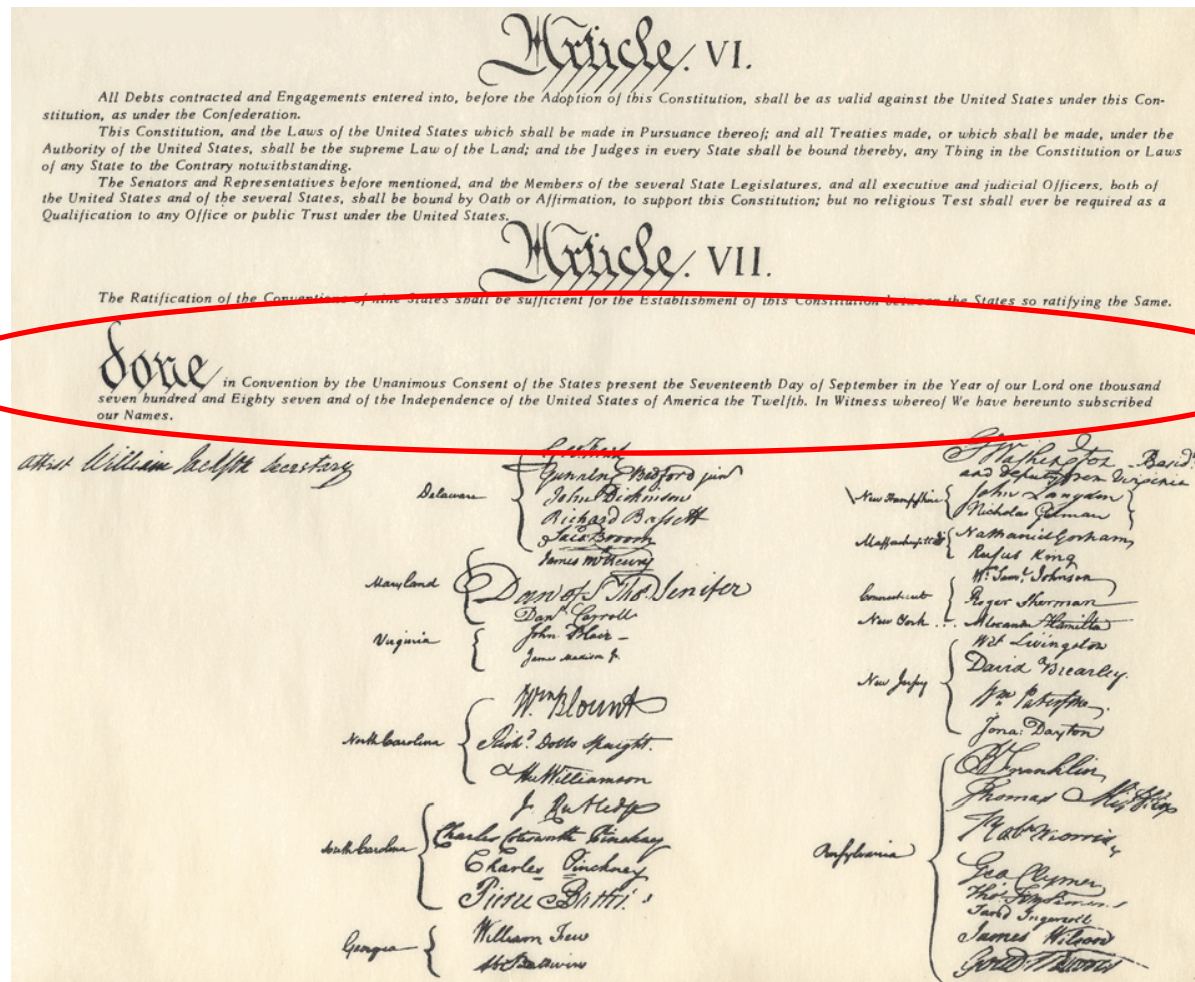 Article. VI.
All Debts contracted and Engagements entered into, before the Adoption of this Constitution, shall be as valid against the United States under this Con-
stitution, as under the Confederation.
This Constitution, and the Laws of the United States which shall be made in Pursuance thereof; and all Treaties made, or which shall be made, under the
Authority of the United States, shall be the supreme Law of the Land; and the Judges in every State shall be bound thereby, any Thing in the Constitution or Laws
of any State to the Contrary notwithstanding.
The Senators and Representatives before mentioned, and the Members of the several State Legislatures, and all executive and judicial Officers, both of
the United States and of the several States, shall be bound by Oath or Affirmation, to support this Constitution; but no religious Test shall ever be required as a
Qualification to any Office or public Trust under the United States.
Article. VII.
The Ratification of the Conventions of nine States shall be sufficient for the Establishment of this Constitution between the States so ratifying the Same.
done in Convention by the Unanimous Consent of the States present the Seventeenth Day of September in the Year of our Lord one thousand
seven hundred and Eighty seven and of the Independence of the United States of America the Twelfth. In Witness whereof We have hereunto subscribed
our Names.
attest William Jackson Secretary
Delaware
Geo: Read
Gunning Bedford jun
John Dickinson
Richard Bassett
Jaco: Broom
Maryland
James McHenry
Dan of St Thos. Jenifer
Danl Carroll
Virginia
John Blair –
James Madison Jr.
North Carolina
Wm Blount
Richd. Dobbs Spaight.
Hu Williamson
South Carolina
J. Rutledge
Charles Cotesworth Pinckney
Charles Pinckney
Pierce Butler.
Georgia
William Few
Abr Baldwin
Go. Washington Presidt.
and deputy from Virginia
New Hampshire
John Langdon
Nicholas Gilman
Massachusetts
Nathaniel Gorham
Rufus King
Connecticut
Wm. Saml. Johnson
Roger Sherman
New York . . .
Alexander Hamilton
New Jersey
Wil: Livingston
David Brearley.
Wm Paterson.
Jona: Dayton
Pensylvania
B Franklin
Thomas Mifflin
Robt Morris
Geo Clymer
Thos. FitzSimons
Jared Ingersoll
James Wilson
Gouv Morris